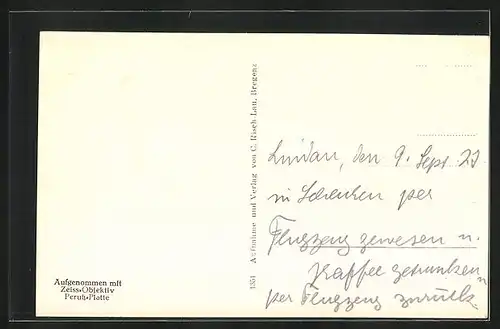 Aufgenommen mit
Zeiss-Objektiv
Perutz-Platte
1354 Aufnahme und Verlag von C. Risch-Lau, Bregenz
Lindau, den 9. Sept. 29
in per
Flugzeug gewesen u.
Kaffee getrunken
per Flugzeug zurück.